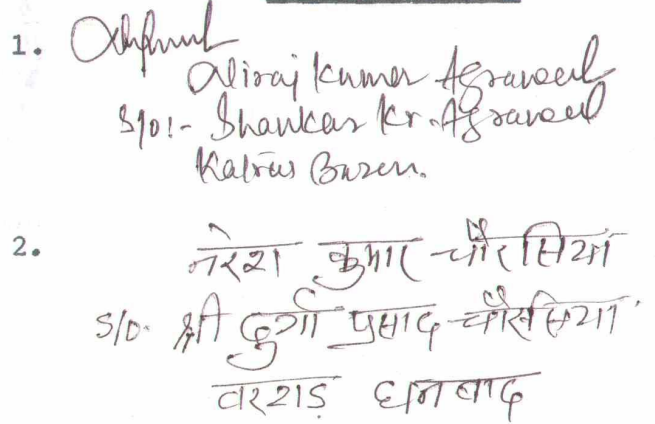 1.
Kumar Agrawal
S/o:- Shankar Kr. Agrawal
Katras Bazar.
2. नरेश कुमार चौरसिया
S/o. श्री दुर्गा प्रसाद चौरसिया
धनबाद